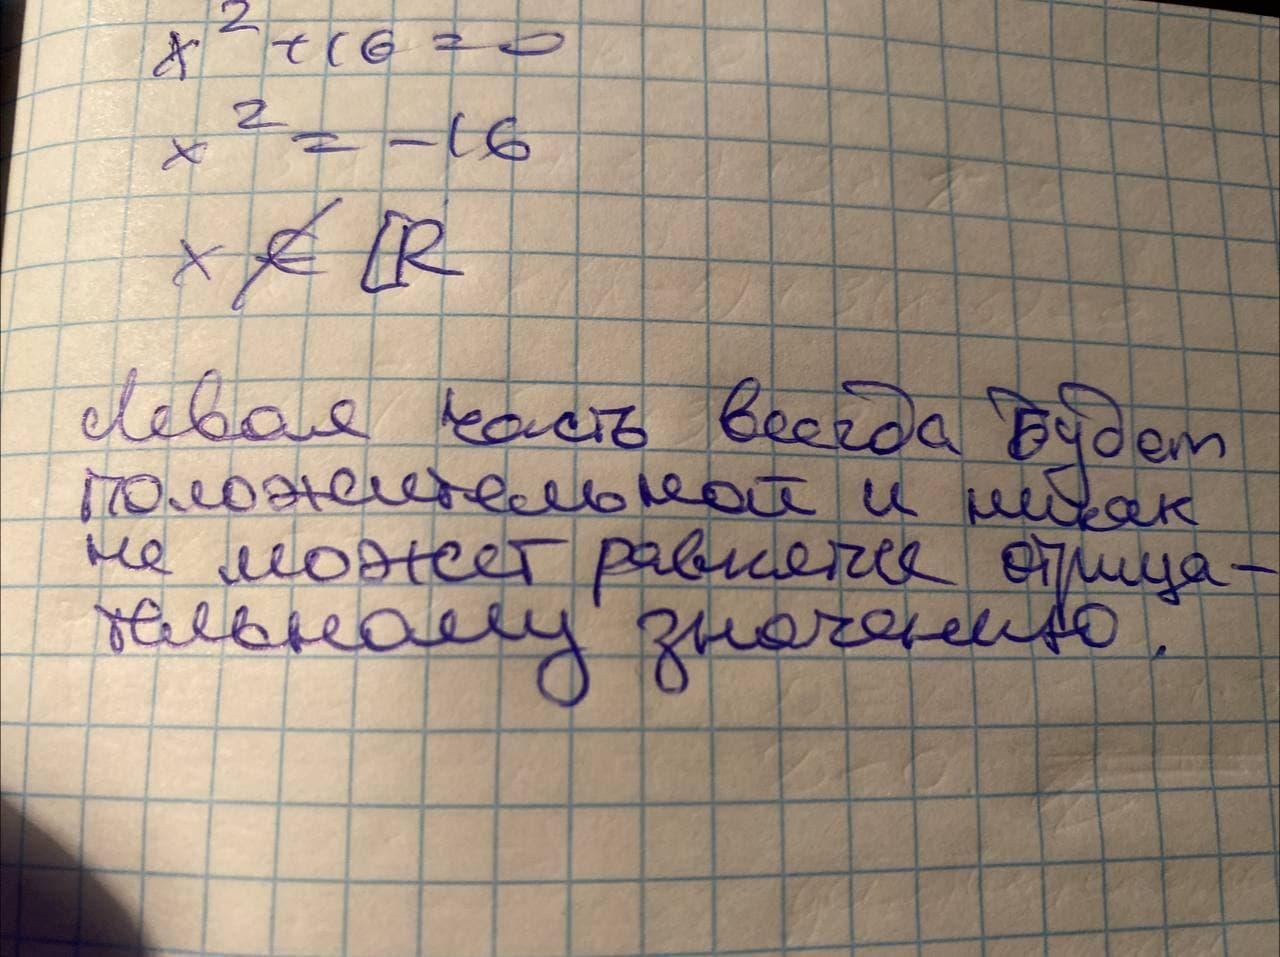 x² + 16 = 0
x² = -16
x ∉ ℝ
Левая часть всегда будет
положительной и никак
не может равнятся отрица-
тельному значению.